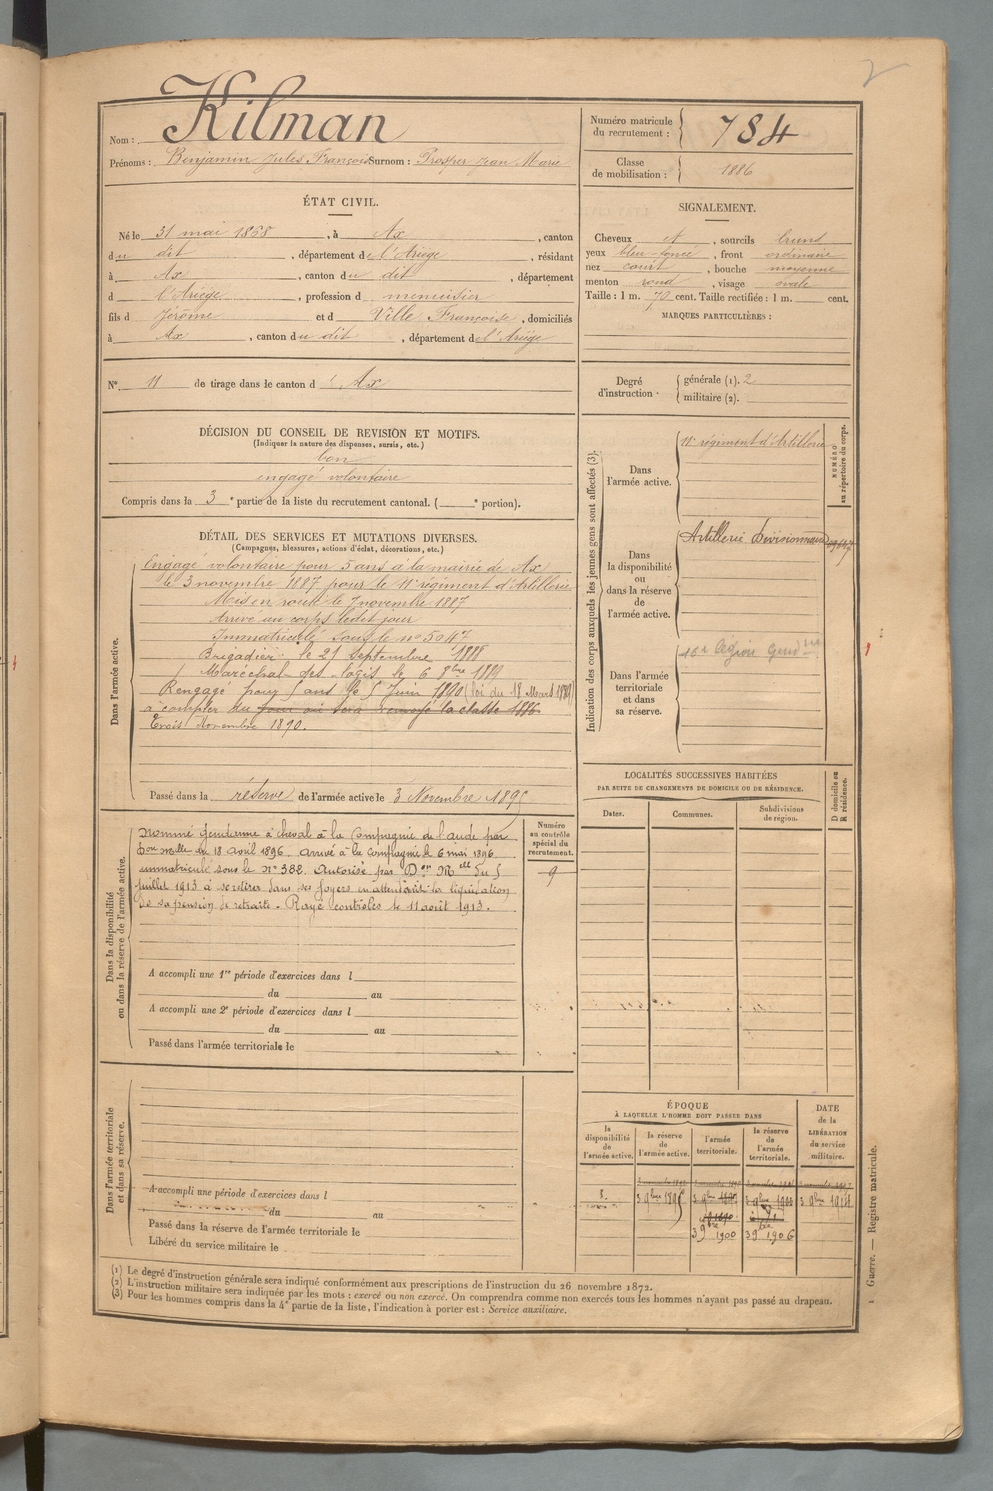 2
Kilman
Nom :
Prénoms : Benjamin Jules François Surnom : Prosper Jean Marie
Numéro matricule du recrutement : 784
Classe de mobilisation : 1886
ÉTAT CIVIL.
Né le 31 mai 1868, à Ax, canton
du dit, département de l'Ariège, résidant
à Ax, canton du dit, département
d l'Ariège, profession d menuisier
fils d Jérôme et d Ville Françoise, domiciliés
à Ax, canton du dit, département de l'Ariège
N° 11 de tirage dans le canton d Ax
SIGNALEMENT.
Cheveux et, sourcils bruns
yeux bleu foncé, front ordinaire
nez court, bouche moyenne
menton rond, visage ovale
Taille : 1 m. 70 cent. Taille rectifiée : 1 m. cent.
MARQUES PARTICULIÈRES :
Degré d'instruction.
générale (1). 2
militaire (2).
DÉCISION DU CONSEIL DE REVISION ET MOTIFS.
(Indiquer la nature des dispenses, sursis, etc.)
bon
engagé volontaire
Compris dans la 3e partie de la liste du recrutement cantonal. ( e portion).
DÉTAIL DES SERVICES ET MUTATIONS DIVERSES.
(Campagnes, blessures, actions d'éclat, décorations, etc.)
Dans l'armée active.
Engagé volontaire pour 5 ans à la mairie de Ax
le 3 novembre 1887 pour le 11e régiment d'Artillerie
Mis en route le 7 novembre 1887
Arrivé au corps ledit jour
Immatriculé sous le no 5047
Brigadier le 21 septembre 1888
Maréchal des Logis le 6 8bre 1889
Rengagé pour 5 ans le 5 Juin 1890 (loi du 18 Mars 1889)
à compter du jour où sera renvoyé la classe 1886
trois Novembre 1890.
Passé dans la réserve de l'armée active le 3 Novembre 1895
Indication des corps auxquels les jeunes gens sont affectés (3).
NUMÉRO au répertoire du corps.
Dans l'armée active.
11e régiment d'Artillerie
Dans la disponibilité ou dans la réserve de l'armée active.
Artillerie Divisionnaire
Dans l'armée territoriale et dans sa réserve.
16e légion Gend
Dans la disponibilité ou dans la réserve de l'armée active.
Numéro au contrôle spécial du recrutement.
9
Nommé Gendarme à cheval à la Compagnie de l'Aude par
Don Mlle du 18 avril 1896. arrivé à la Compagnie le 6 mai 1896
immatriculé sous le N° 382. Autorisé par Don Melle du 5
juillet 1913 à se retirer dans ses foyers en attendant la liquidation
de sa pension de retraite. Rayé contrôles le 11 août 1913.
A accompli une 1re période d'exercices dans l
du au
A accompli une 2e période d'exercices dans l
du au
Passé dans l'armée territoriale le
LOCALITÉS SUCCESSIVES HABITÉES
PAR SUITE DE CHANGEMENTS DE DOMICILE OU DE RÉSIDENCE.
Dates. Communes. Subdivisions de région.
D domicile ou R résidence.
Dans l'armée territoriale et dans sa réserve.
A accompli une période d'exercices dans l
du au
Passé dans la réserve de l'armée territoriale le
Libéré du service militaire le
ÉPOQUE
À LAQUELLE L'HOMME DOIT PASSER DANS
la disponibilité de l'armée active.
la réserve de l'armée active.
l'armée territoriale.
la réserve de l'armée territoriale.
DATE de la LIBÉRATION du service militaire.
3 9bre 1895
3 9bre 1900
3 9bre 1906
(1) Le degré d'instruction générale sera indiqué conformément aux prescriptions de l'instruction du 26 novembre 1872.
(2) L'instruction militaire sera indiquée par les mots : exercé ou non exercé. On comprendra comme non exercés tous les hommes n'ayant pas passé au drapeau.
(3) Pour les hommes compris dans la 4e partie de la liste, l'indication à porter est : Service auxiliaire.
Guerre. — Registre matricule.